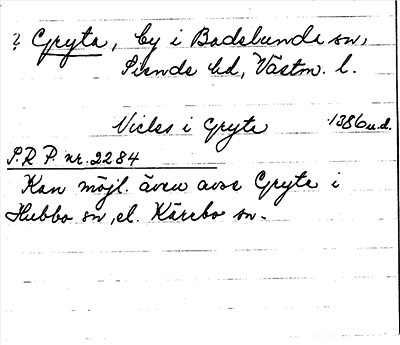 ? Gryta, by i Badelunda sn,
Siende hd, Västm. l.
Niclis i Gryte 1386 u.d.
S.R.P. nr. 2284
Kan möjl. även avse Gryta i
Hubbo sn, el. Kärrbo sn.